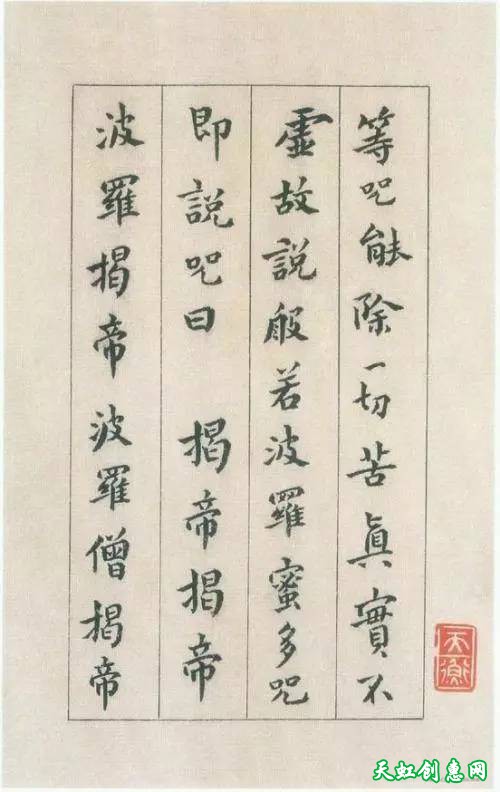 等咒能除一切苦真實不
虛故說般若波羅蜜多咒
即說咒曰 揭帝揭帝
波羅揭帝波羅僧揭帝
天衡
天虹创惠网